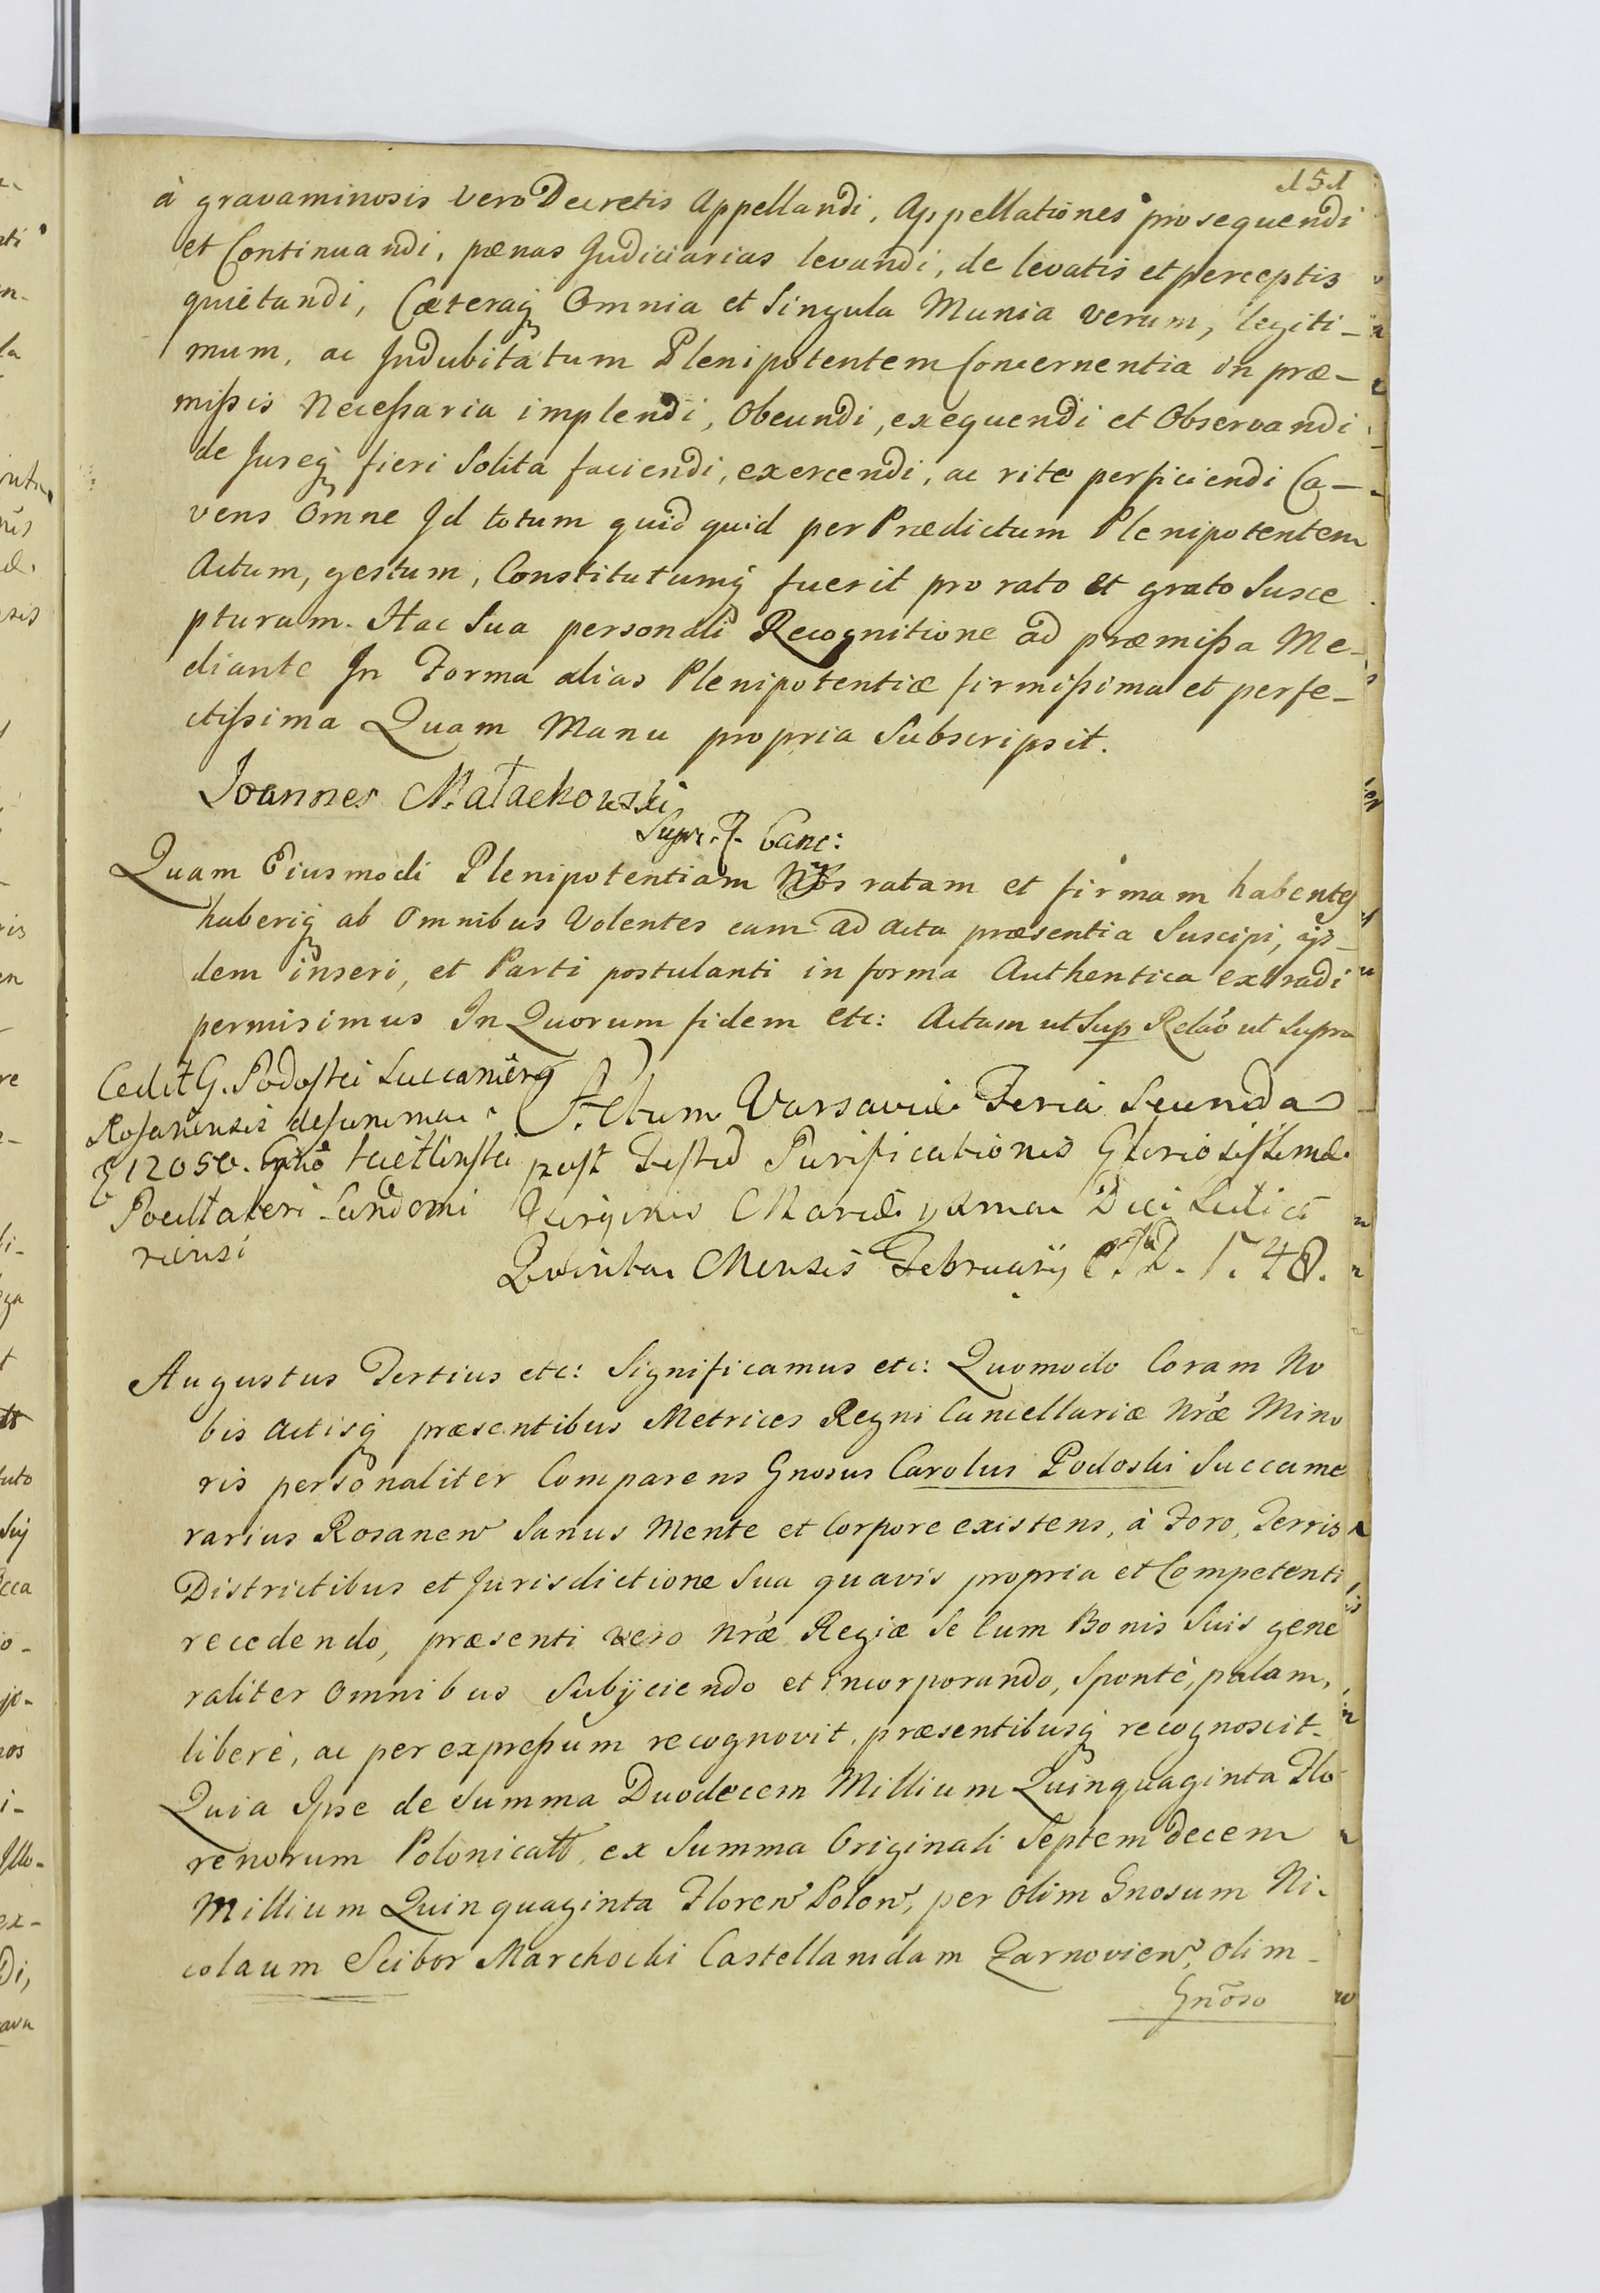 151
à gravaminosis vero Decretis Appellandi, Appellationes prosequendi
et Continuandi, pænas Judiciarias levandi, de levatis et perceptis
quietandi, Cæteraq Omnia et Singula Munia verum, legiti-
mum, ac Indubitatum Plenipotentem Concernentia in præ-
mißis Neceßaria implendi, Obeundi, exequendi et Observandi
de Jureq fieri Solita faciendi, exercendi, ac rite perficiendi Ca-
vens Omne Id totum quid quid per Prædictum Plenipotentem
Actum, gestum, Constitutumq fuerit pro rato et grato Susce
pturum. Hac Sua personali Recognitione ad præmißa Me-
diante In Forma alias Plenipotentiæ firmißima et perfe-
ctißima Quam Manu propria Subscripsit.
Joannes Małachowski
Supr. R. Canc:
Quam Eiusmodi Plenipotentiam Nos ratam et firmam habentes
haberiq ab Omnibus Volentes eam ad acta præsentia Suscipi, ijs-
dem inseri, et Parti postulanti in forma Authentica extradi
permisimus In Quorum fidem etc: Actum ut Sup Relão ut Supra
Cedit G. Podoski Succamerq
Rosanensis de summa
12050. Gnõ
Pocillatori Sendomi
riensi
Actum Varsaviæ Feria Secunda
post Festum Purificationis Gloriosissimæ
Virginis Mariæ Die
Quinta Mensis February A. D. 1748.
Augustus Tertius etc: Significamus etc: Quomodo Coram No
bis actisq præsentibus Metrices Regni Cancellariæ Nræ Mino
ris personaliter Comparens Gnosus Carolus Podoski Succame
rarius Rosanen Sanus Mente et Corpore existens, à Foro, Terris
Districtibus et Jurisdictione Sua quavis propria et Competenti
recedendo, præsenti vero Nræ Regiæ Se Cum Bonis Suis gene
raliter Omnibus Subijciendo et incorporando, Sponté, palam,
liberè, ac per expreßum recognovit, præsentibusq recognoscit.
Quia Ipse de Summa Duodecem Millium Quinquaginta Flo
renorum Polonicall, ex Summa Originali Septem decem
Millium Quinquaginta Floren Polon, per olim Gnosum Ni-
colaum Scibor Marchocki Castellanidam Żarnovien, olim
Gnõso